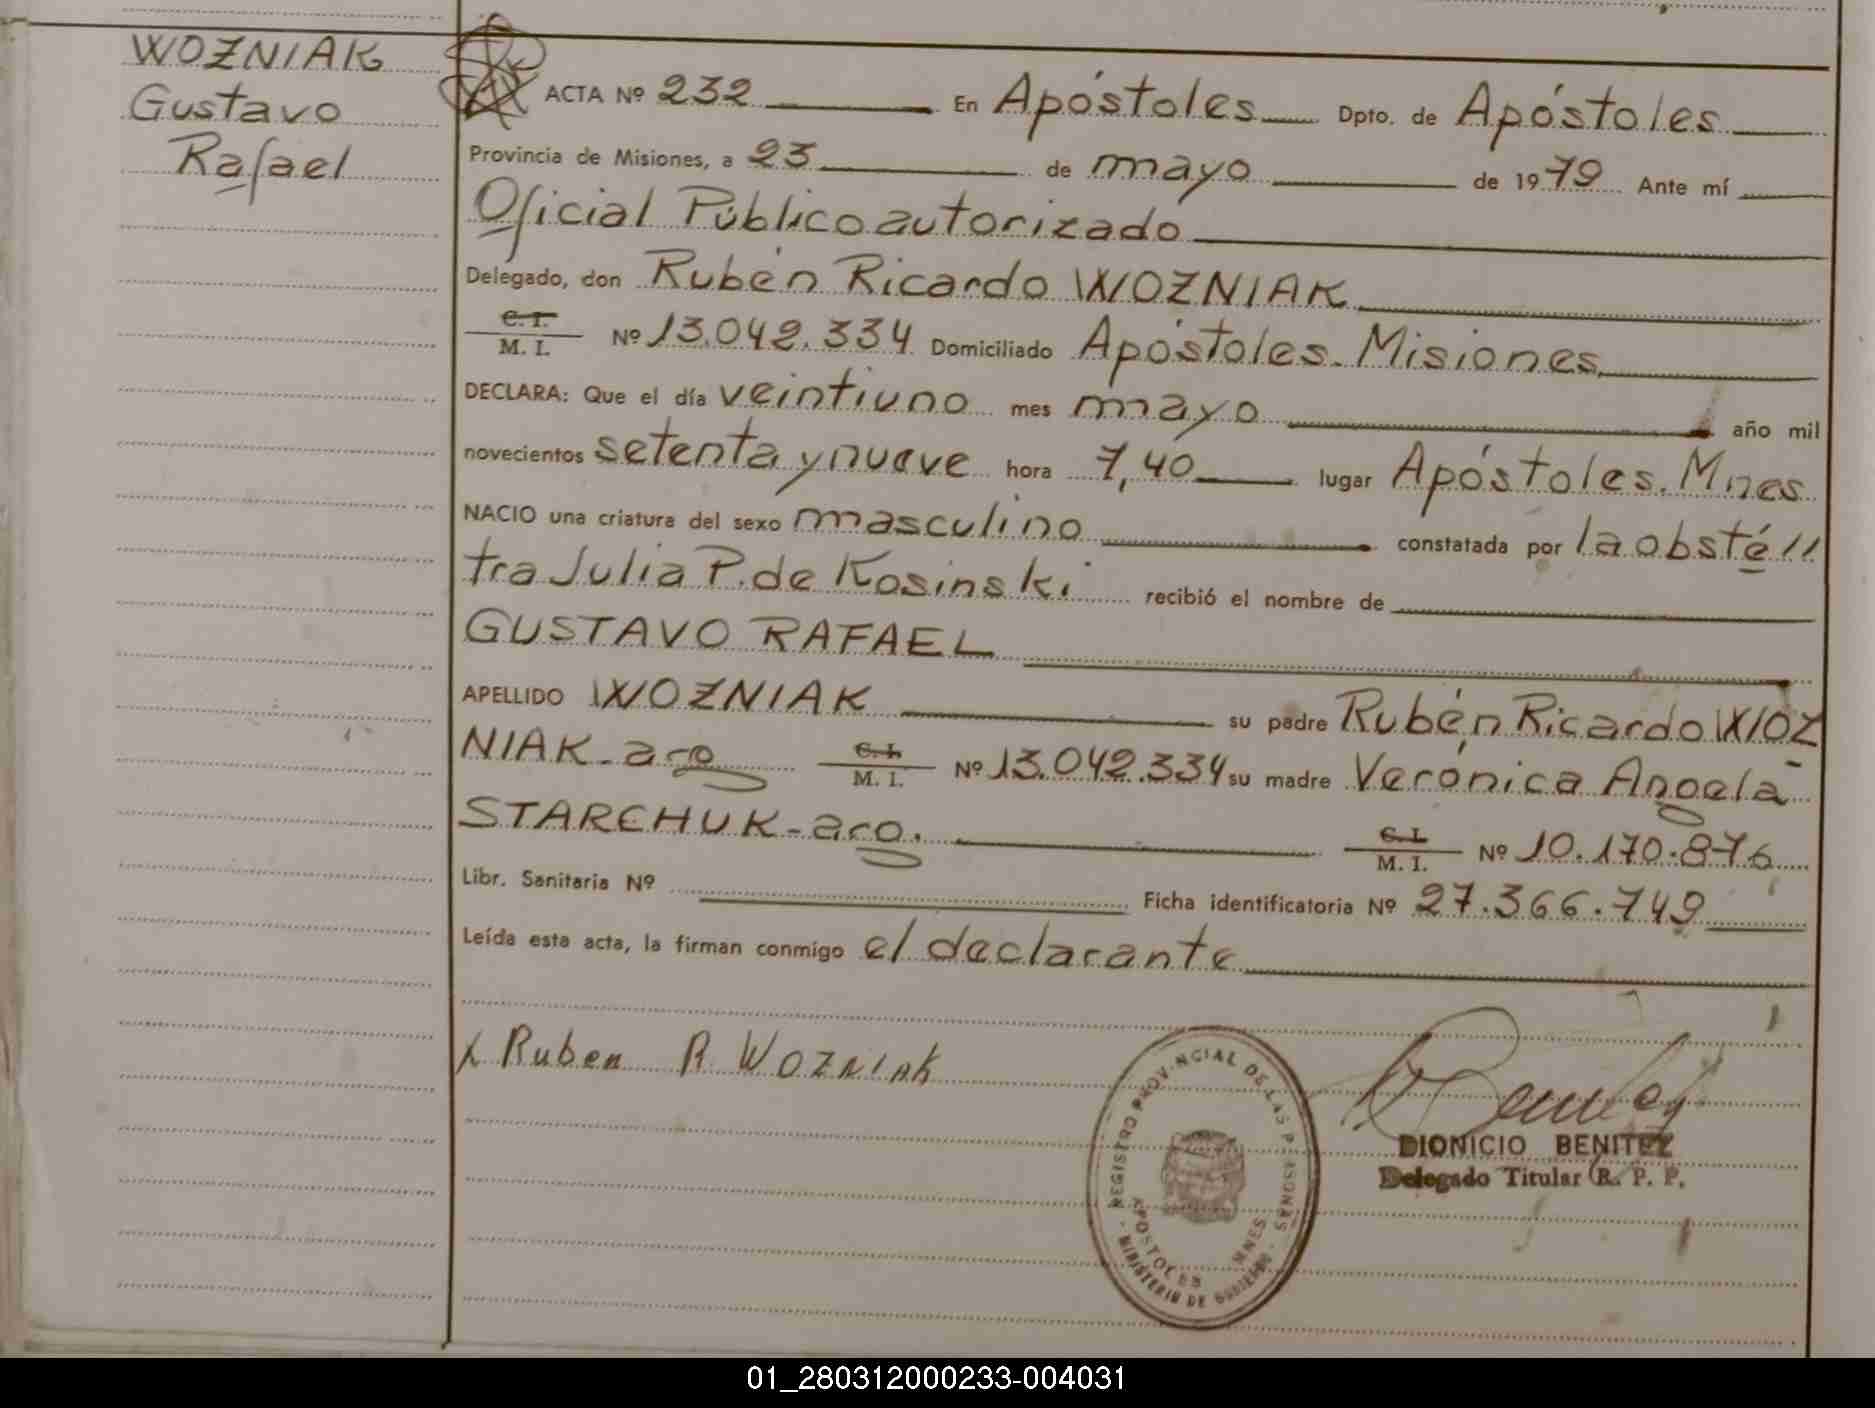 WOZNIAK
Gustavo
Rafael
ACTA Nº 232 En Apóstoles Dpto. de Apóstoles
Provincia de Misiones, a 23 de mayo de 1979 Ante mí
Oficial Público autorizado
Delegado, don Rubén Ricardo WOZNIAK
C. I. / M. I. Nº 13.042.334 Domiciliado Apóstoles. Misiones
DECLARA: Que el día veintiuno mes mayo año mil
novecientos setenta y nueve hora 7,40 lugar Apóstoles. Mnes
NACIO una criatura del sexo masculino constatada por la obsté//
tra Julia P. de Kosinski recibió el nombre de
GUSTAVO RAFAEL
APELLIDO WOZNIAK su padre Rubén Ricardo WOZ
NIAK - aro C. I. / M. I. Nº 13.042.334 su madre Verónica Angela
STARCHUK - aro. C. I. / M. I. Nº 10.170.876
Libr. Sanitaria Nº Ficha identificatoria Nº 27.366.749
Leída esta acta, la firman conmigo el declarante
Ruben R. WOZNIAK
REGISTRO PROVINCIAL DE LAS PERSONAS
APOSTOLES MNES
MINISTERIO DE GOBIERNO
DIONICIO BENITEZ
Delegado Titular R. P. P.
01_280312000233-004031